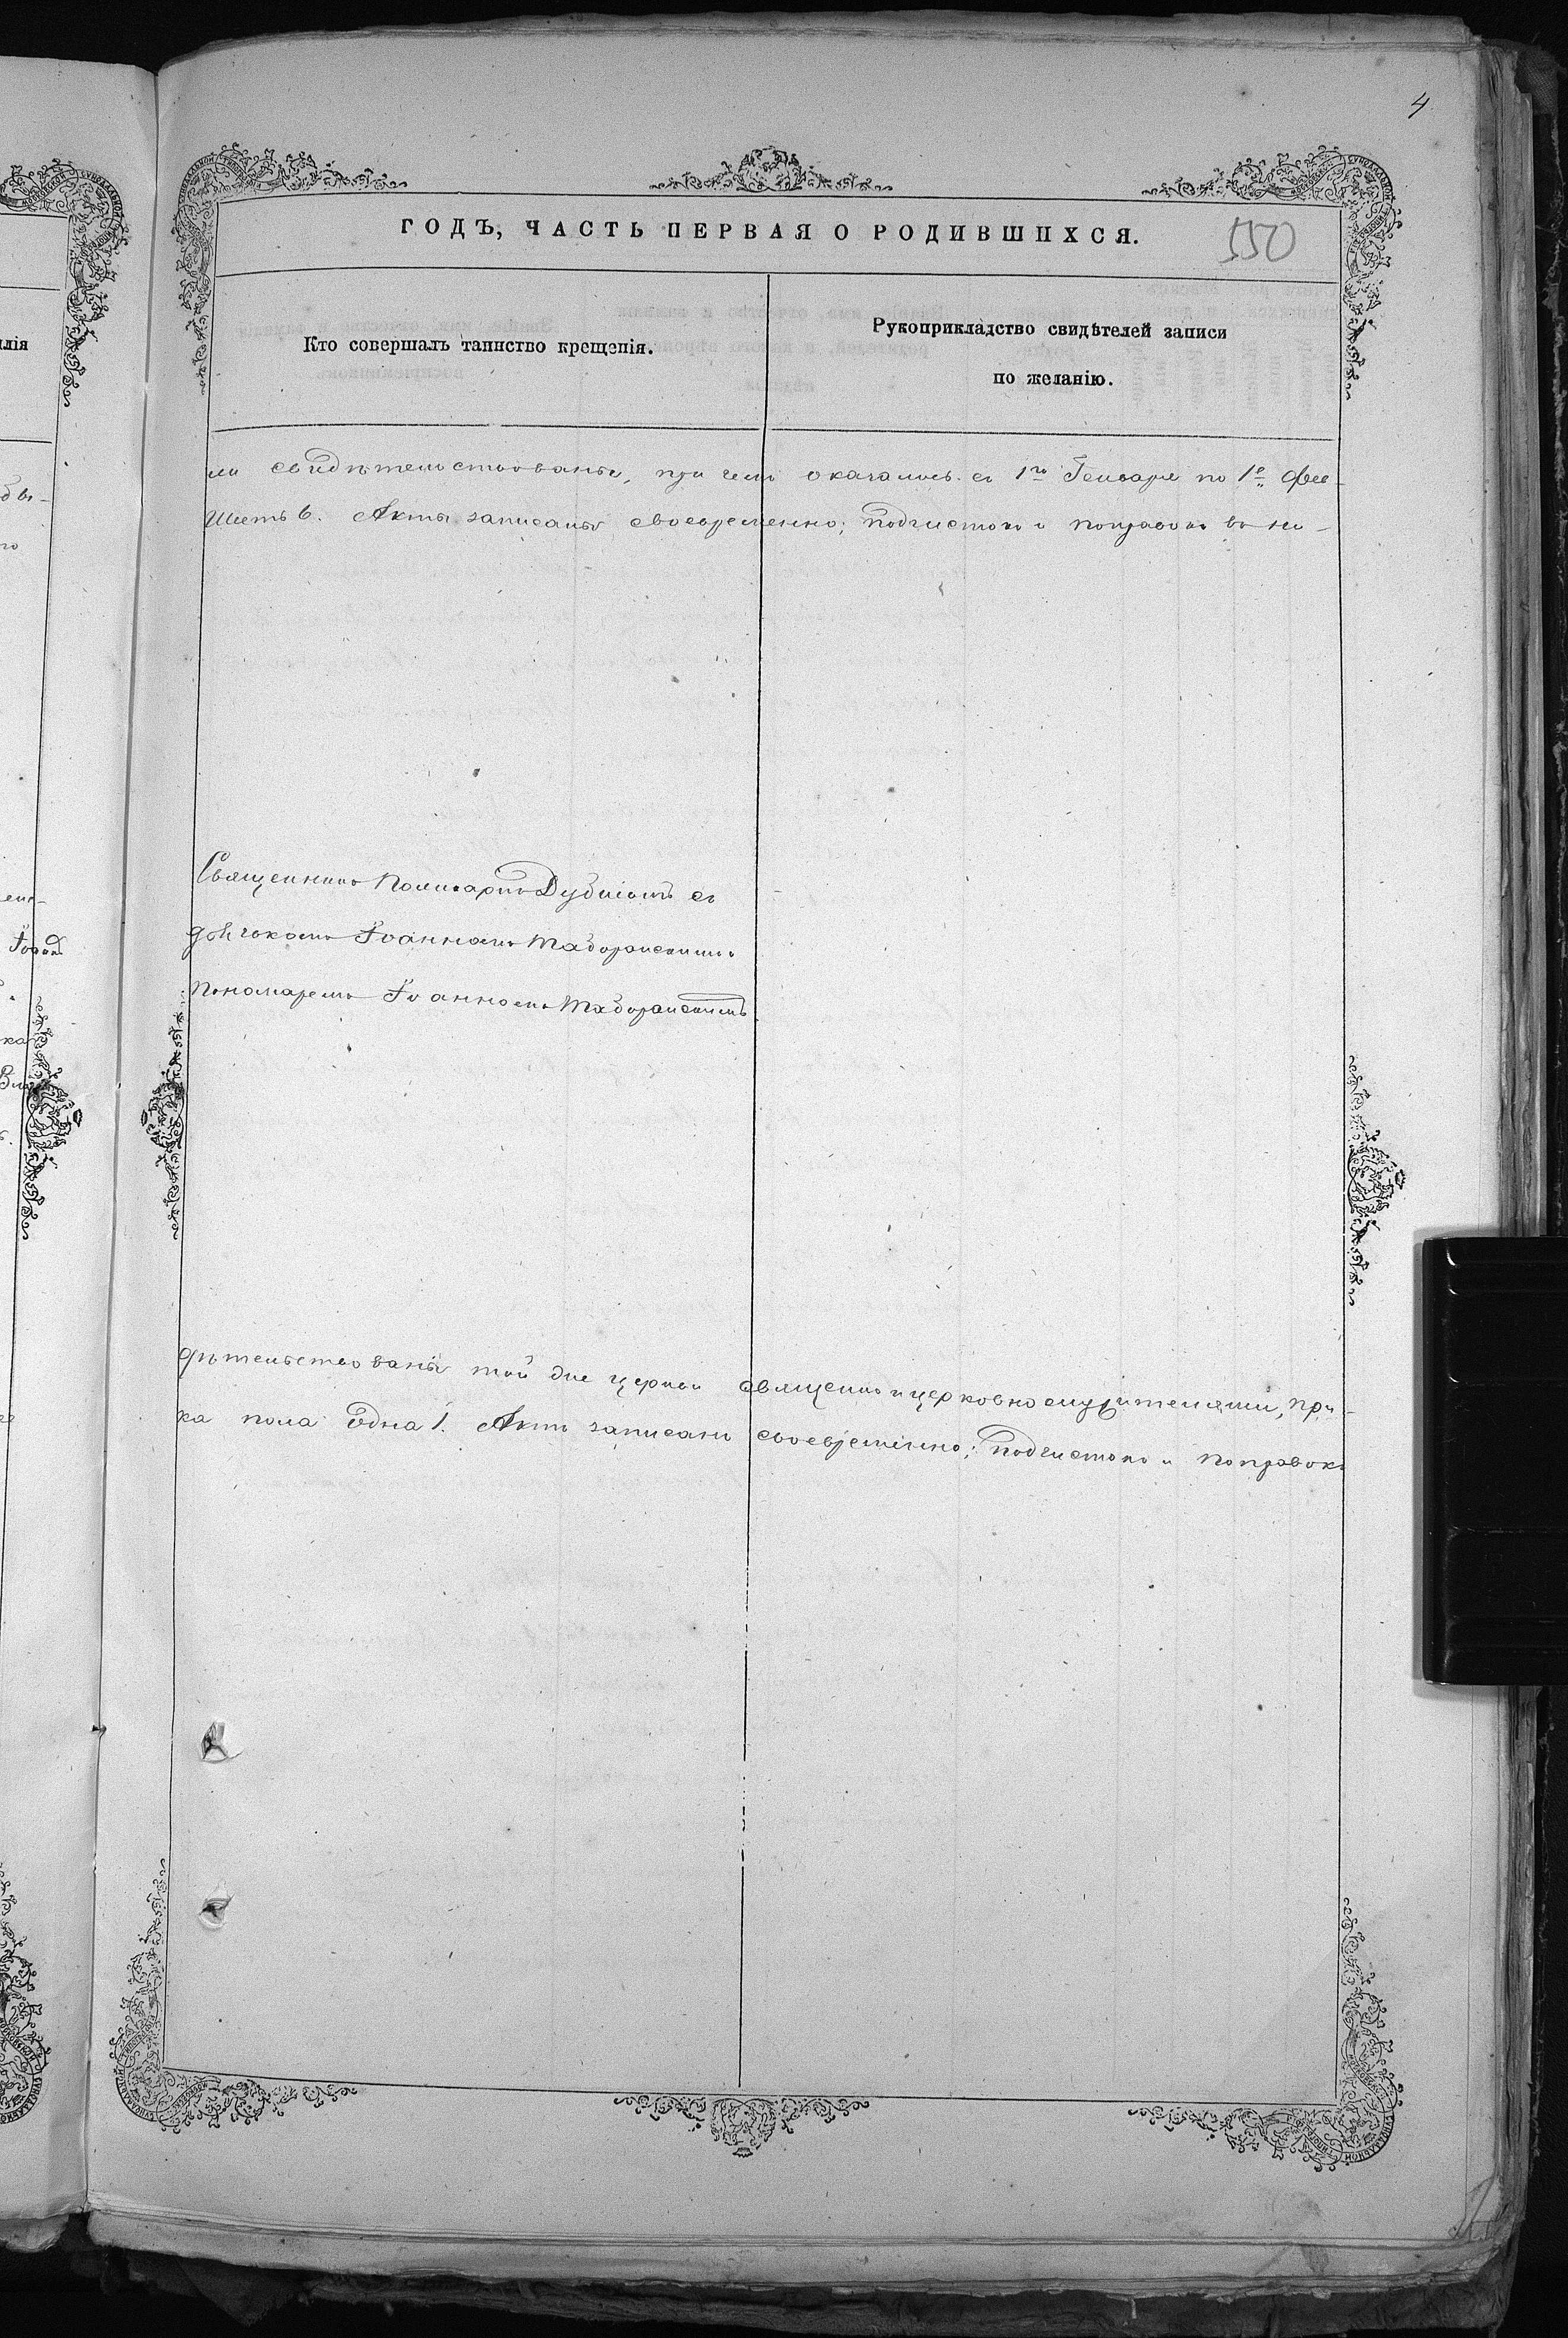 4
ГОДЪ, ЧАСТЬ ПЕРВАЯ О РОДИВШИХСЯ.
550
Кто совершалъ таинство крещенія.
Рукоприкладство свидѣтелей записи
по желанію.
ли свидѣтельствованы, при чемъ оказалось съ 1го Генваря по 1е Фев-
шесть 6. Акты записаны своевременно; подчистокъ и поправокъ въ ни-
Священникъ Поликарпъ Дубнъ съ
дьячкомъ Іоанномъ Таборанскимъ
пономаремъ Іоанномъ Таборанскимъ
дѣтельствованы той же церкви священно и церковнослужителями, при-
ка пола одна 1. Актъ записанъ своевременно; подчистокъ и поправокъ